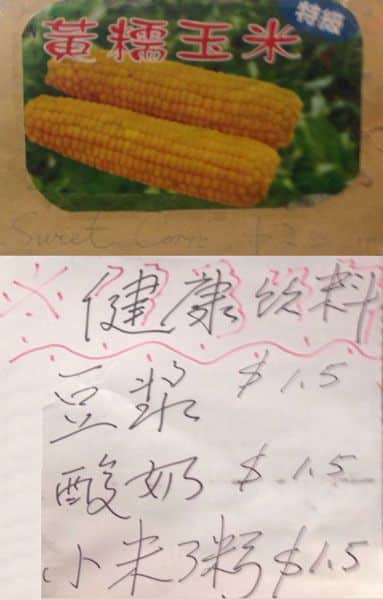 特級
黃糯玉米
Sweet Corn
健康饮料
豆浆 $1.5
酸奶 $1.5
小米粥 $1.5